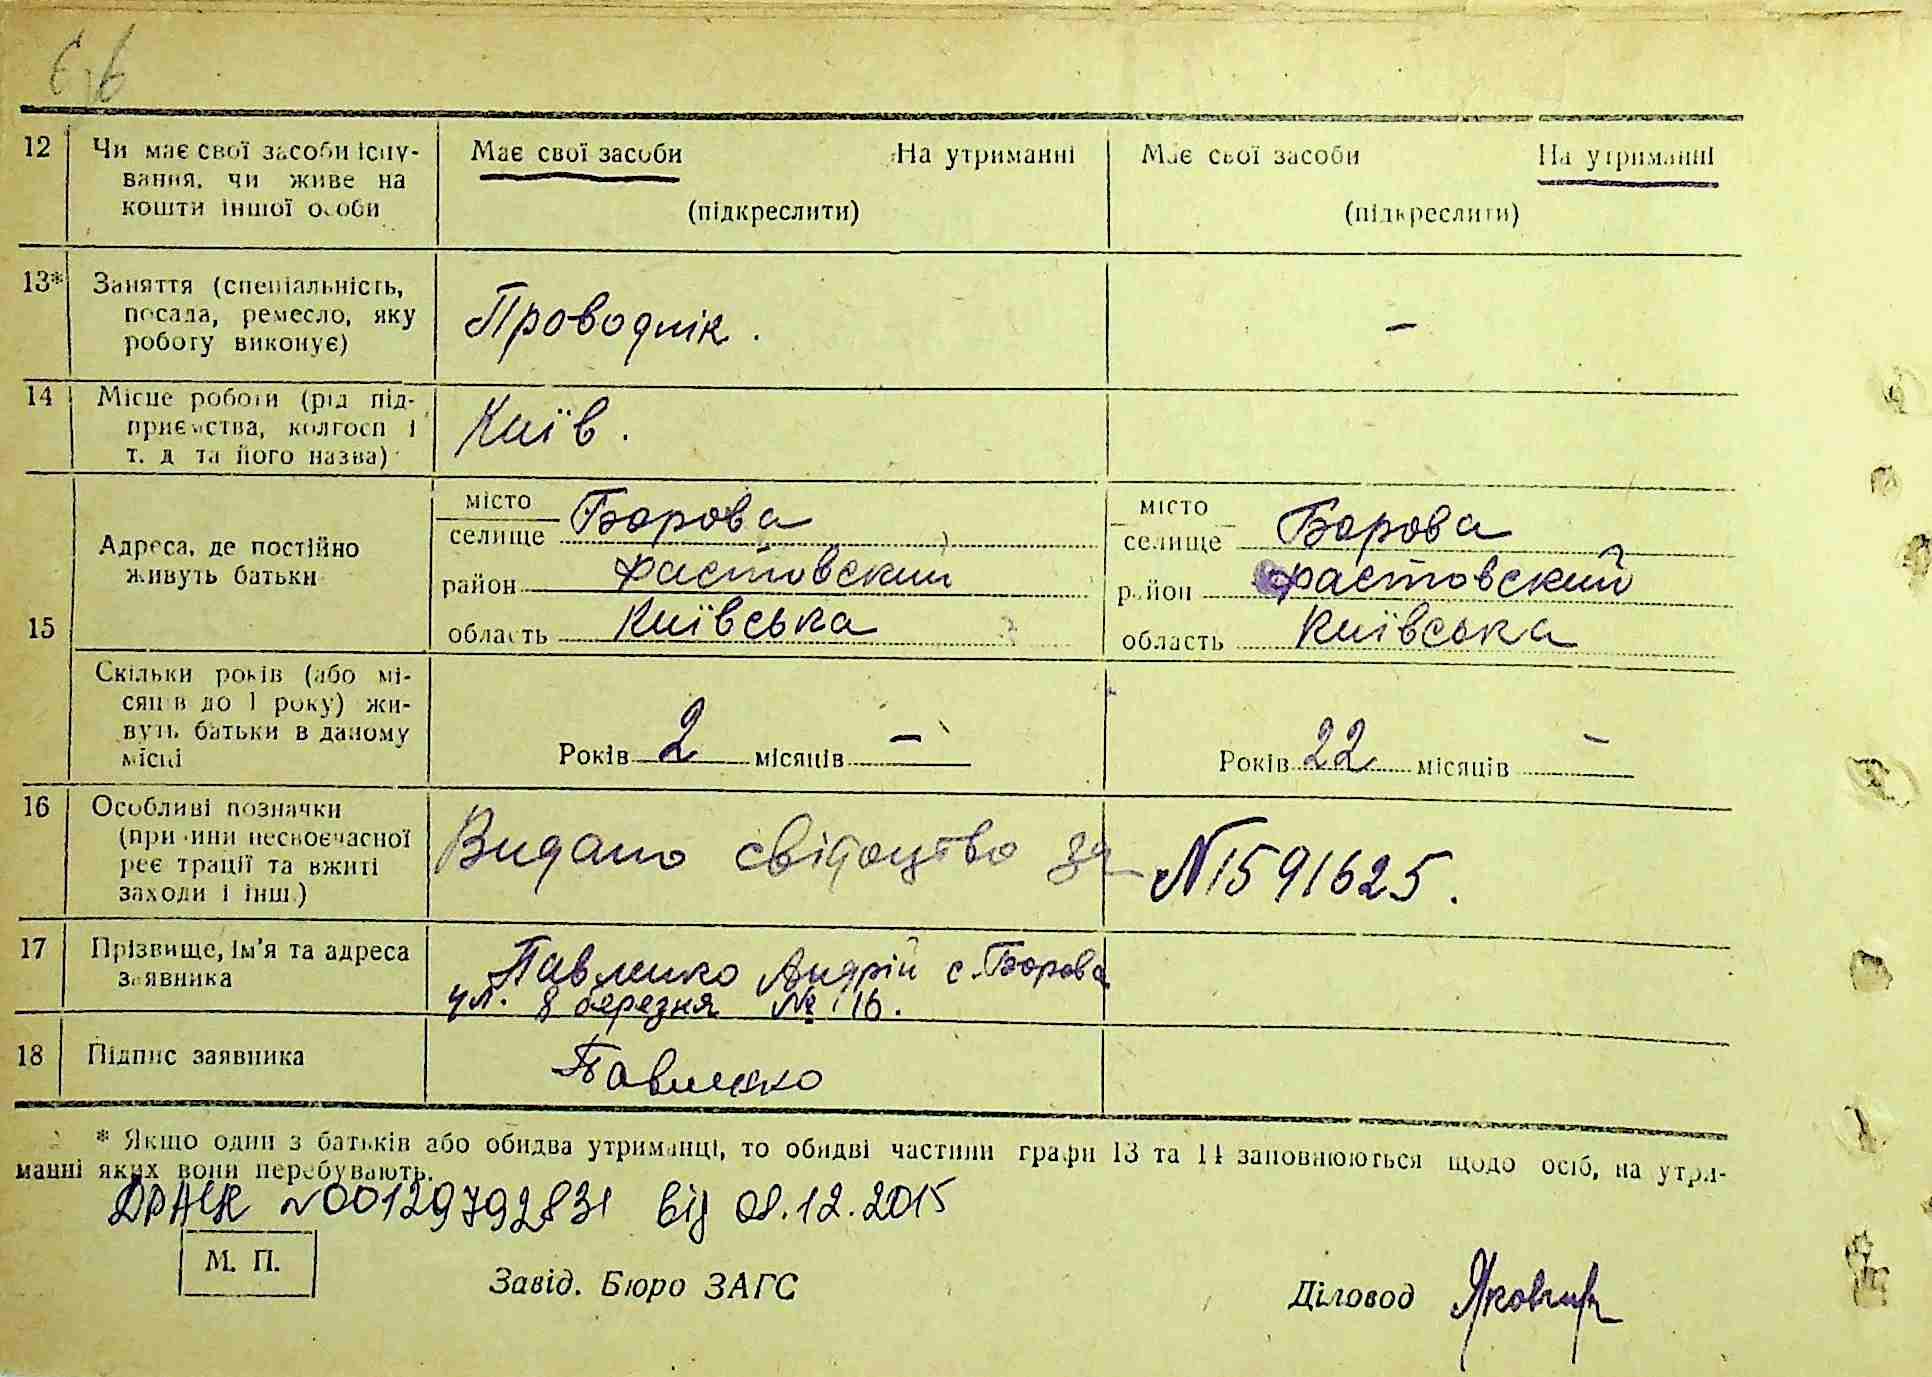 12 Чи має свої засоби існу- Має свої засоби На утриманні Має свої засоби На утриманні
вання, чи живе на
кошти іншої особи (підкреслити) (підкреслити)
13* Заняття (спеціальність,
посада, ремесло, яку Проводнік. —
роботу виконує)
14 Місце роботи (рід під-
приємства, колгосп і Київ.
т. д. та його назва)
15 Адреса, де постійно
живуть батьки
місто
селище Борова
район фастовский
область Київська
місто
селище Борова
район фастовский
область Київська
Скільки років (або мі-
сяців до 1 року) жи-
вуть батьки в даному
місці
Років 2 місяців —
Років 22 місяців —
16 Особливі позначки
(причини несвоєчасної
реєстрації та вжиті
заходи і інш.)
Видано свідоцтво за №1591625.
17 Прізвище, ім'я та адреса
заявника
Павленко Андрій с. Борова
ул. 8 березня № 16.
18 Підпис заявника Павленко
* Якщо один з батьків або обидва утриманці, то обидві частини графи 13 та 14 заповнюються щодо осіб, на утри-
манні яких вони перебувають.
ДРАЦС №00129792831 від 08.12.2015
М. П.
Завід. Бюро ЗАГС Діловод